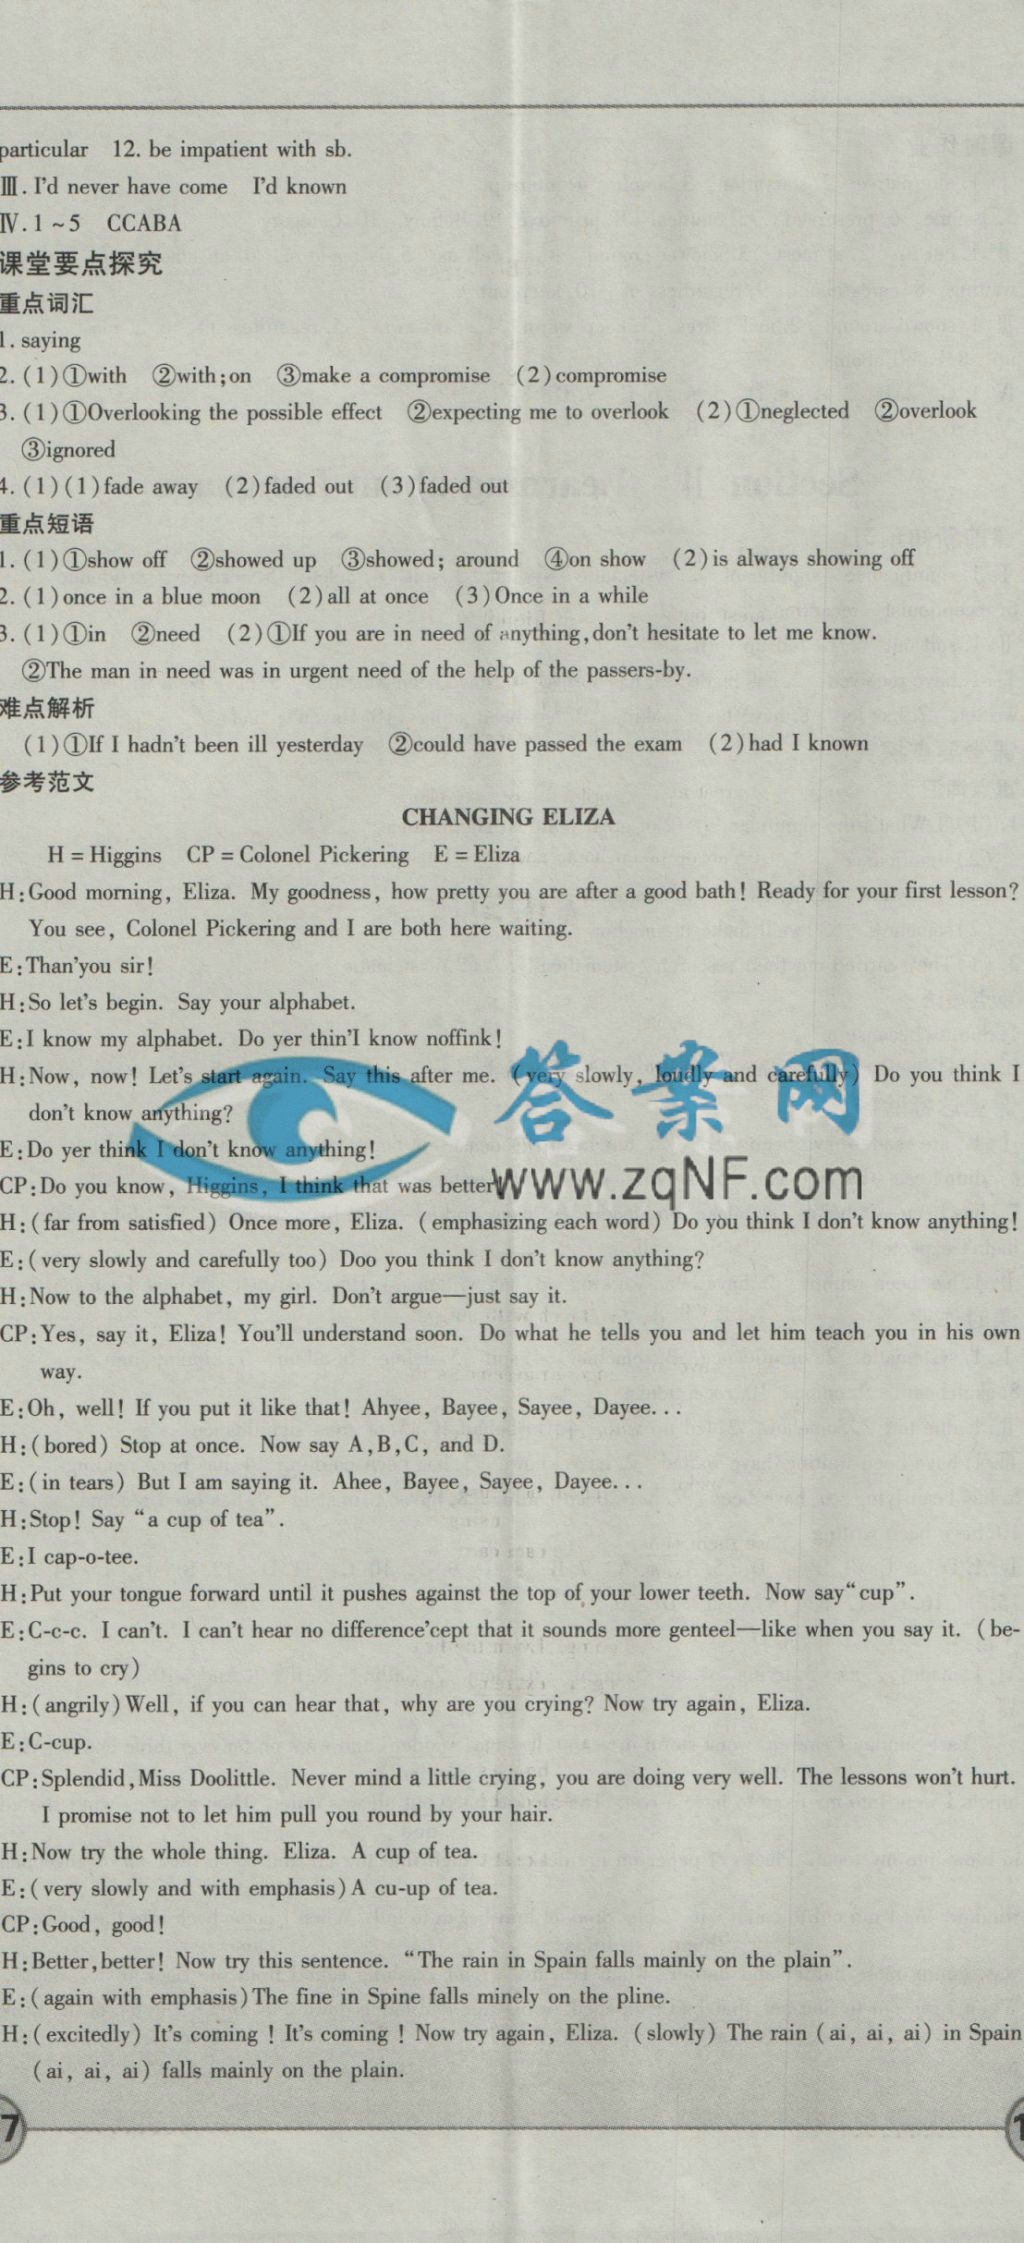 particular 12. be impatient with sb.
Ⅲ. I'd never have come I'd known
Ⅳ. 1~5 CCABA
课堂要点探究
重点词汇
1. saying
2. (1)①with ②with;on ③make a compromise (2)compromise
3. (1)①Overlooking the possible effect ②expecting me to overlook (2)①neglected ②overlook
③ignored
4. (1)(1)fade away (2)faded out (3)faded out
重点短语
1. (1)①show off ②showed up ③showed; around ④on show (2)is always showing off
2. (1)once in a blue moon (2)all at once (3)Once in a while
3. (1)①in ②need (2)①If you are in need of anything,don't hesitate to let me know.
②The man in need was in urgent need of the help of the passers-by.
难点解析
(1)①If I hadn't been ill yesterday ②could have passed the exam (2)had I known
参考范文
CHANGING ELIZA
H = Higgins CP = Colonel Pickering E = Eliza
H:Good morning, Eliza. My goodness, how pretty you are after a good bath! Ready for your first lesson?
You see, Colonel Pickering and I are both here waiting.
E:Than'you sir!
H:So let's begin. Say your alphabet.
E:I know my alphabet. Do yer thin'I know noffink!
H:Now, now! Let's start again. Say this after me. (very slowly, loudly and carefully) Do you think I
don't know anything?
E:Do yer think I don't know anything!
CP:Do you know, Higgins, I think that was better.
答案网
www.zqNF.com
H:(far from satisfied) Once more, Eliza. (emphasizing each word) Do you think I don't know anything!
E:(very slowly and carefully too) Doo you think I don't know anything?
H:Now to the alphabet, my girl. Don't argue—just say it.
CP:Yes, say it, Eliza! You'll understand soon. Do what he tells you and let him teach you in his own
way.
E:Oh, well! If you put it like that! Ahyee, Bayee, Sayee, Dayee...
H:(bored) Stop at once. Now say A,B,C, and D.
E:(in tears) But I am saying it. Ahee, Bayee, Sayee, Dayee...
H:Stop! Say "a cup of tea".
E:I cap-o-tee.
H:Put your tongue forward until it pushes against the top of your lower teeth. Now say"cup".
E:C-c-c. I can't. I can't hear no difference'cept that it sounds more genteel—like when you say it. (be-
gins to cry)
H:(angrily)Well, if you can hear that, why are you crying? Now try again, Eliza.
E:C-cup.
CP:Splendid,Miss Doolittle. Never mind a little crying, you are doing very well. The lessons won't hurt.
I promise not to let him pull you round by your hair.
H:Now try the whole thing. Eliza. A cup of tea.
E:(very slowly and with emphasis)A cu-up of tea.
CP:Good, good!
H:Better,better! Now try this sentence. "The rain in Spain falls mainly on the plain".
E:(again with emphasis)The fine in Spine falls minely on the pline.
H:(excitedly) It's coming ! It's coming ! Now try again, Eliza. (slowly) The rain (ai, ai, ai) in Spain
(ai, ai, ai) falls mainly on the plain.
7
1